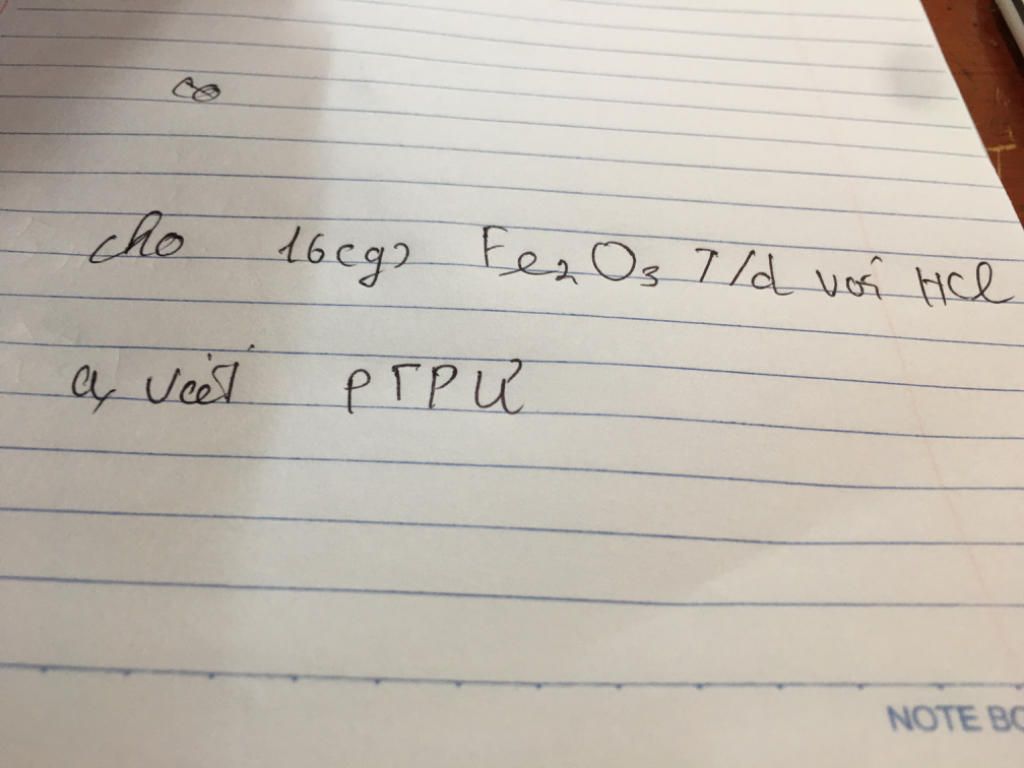 cho 16(g) Fe2O3 T/d với HCl
a, Viết PTPƯ
NOTE BO